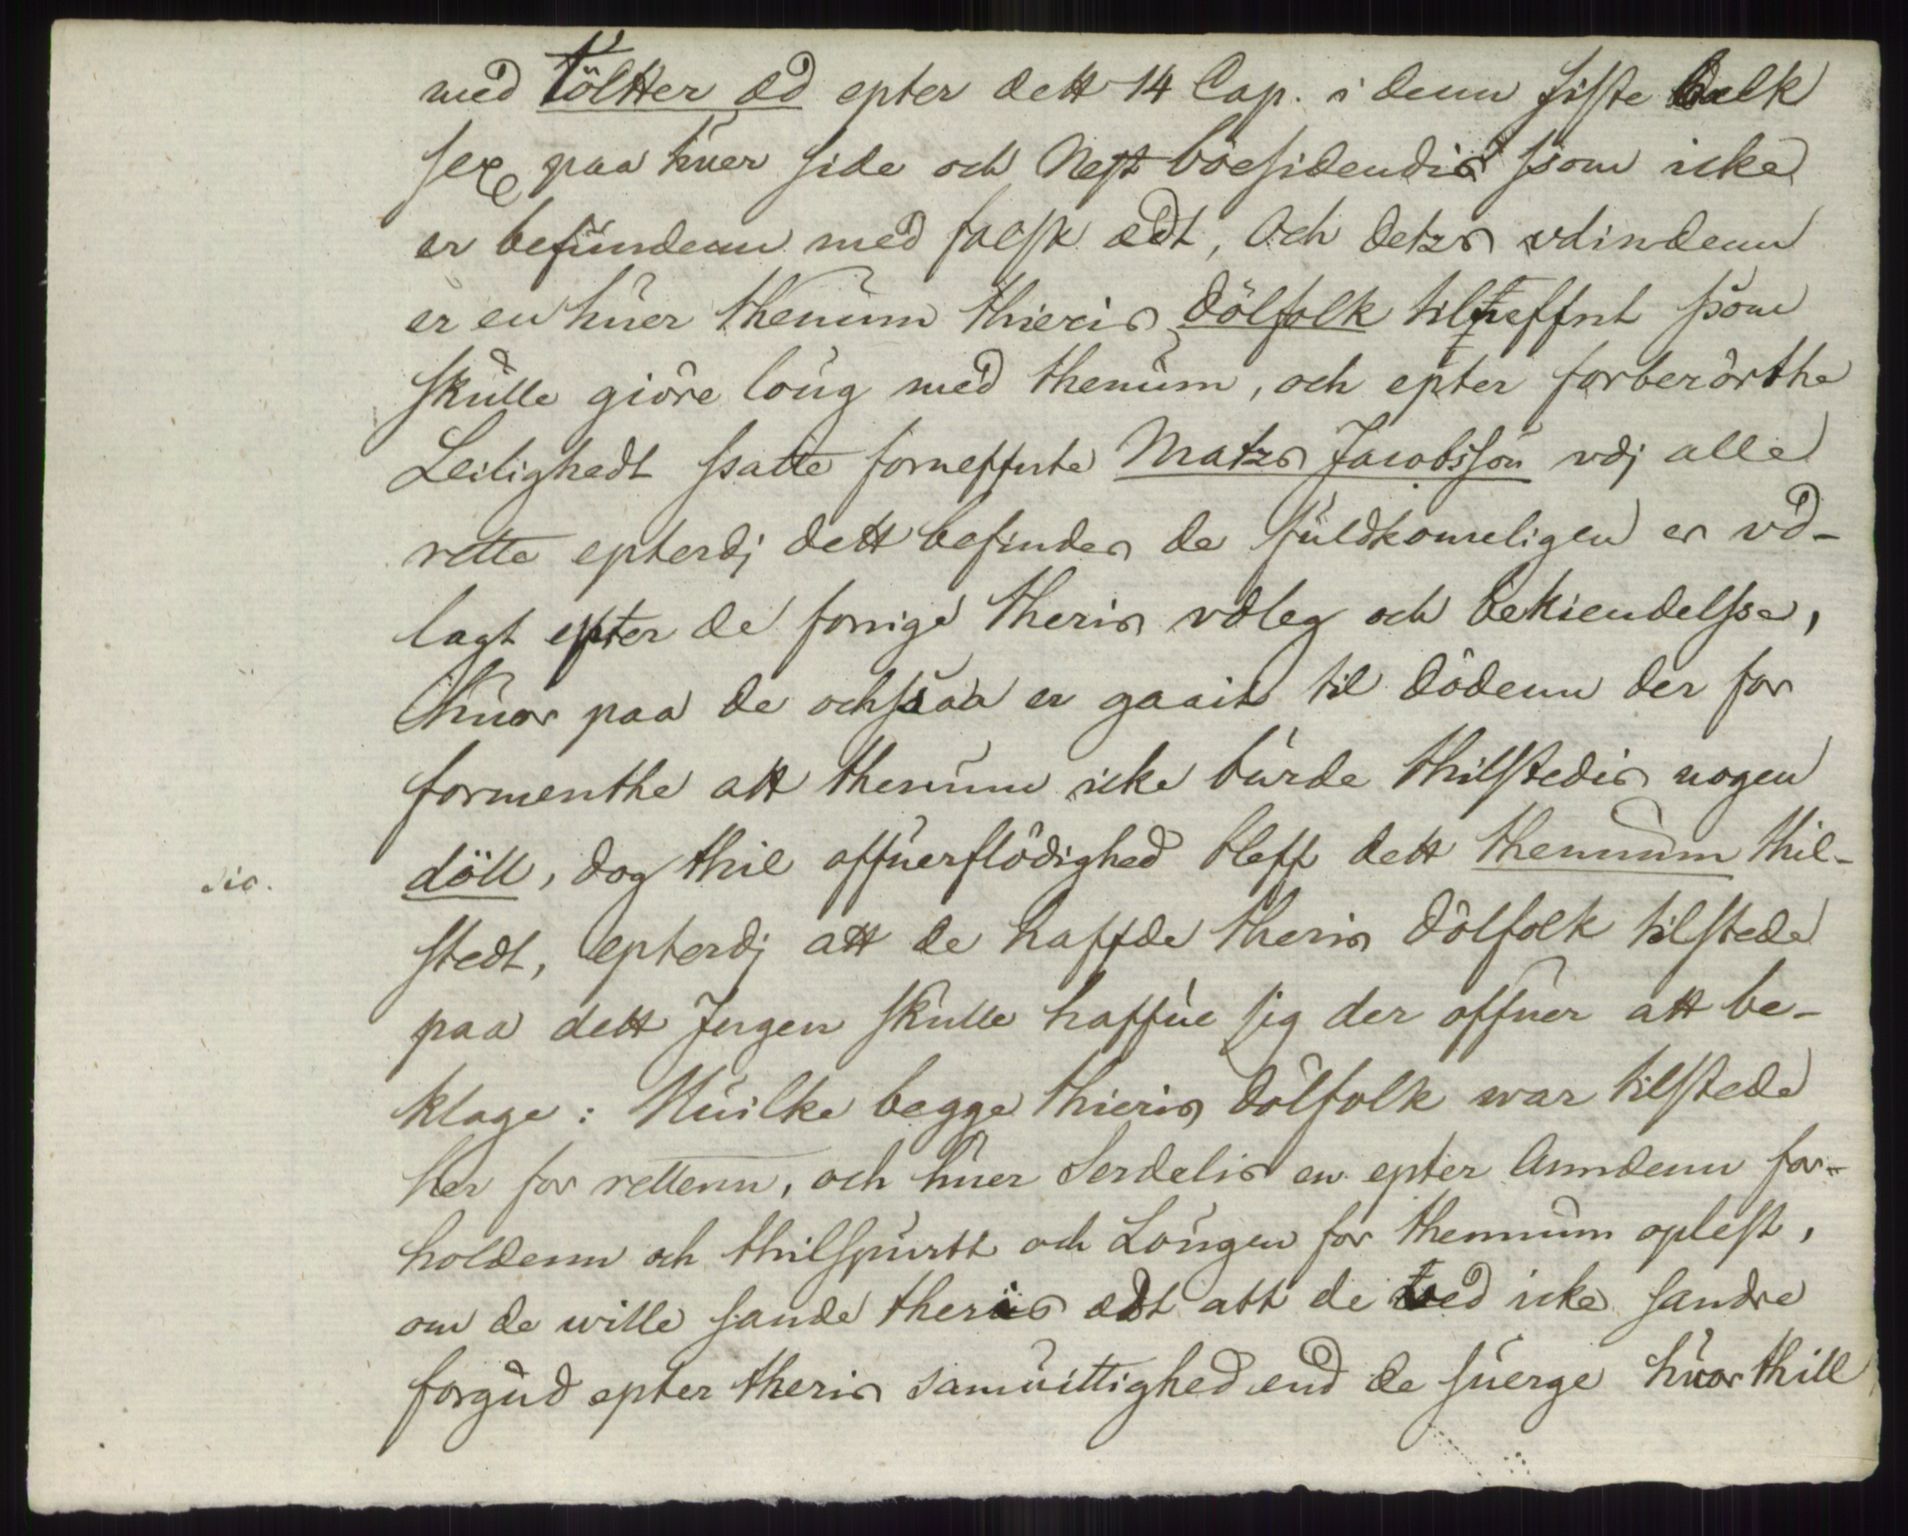 med tölther æd epter dett 14 Cap. i denn siste balk
sex paa huer side och Nest boesidendis som icke
er befundenn med falsk ædt, Och detzs vdindenn
er en huer thenum thieris dölfolk tilneffnt som
skulle giöre loug med thenum, och epter forberörthe
Leilighedt satte forneffnte Matzs Jacobssön vdj alle
rette epterdj dett befindes de fuldkomeligen er vd-
lagt epter de forrige theris vdleg och bekiendelsse,
huor paa de ochsaa er gaait til dödenn der for
formenthe att thenum icke burde thilstedis nogen
döll, dog thil offuerflödighed bleff dett thennum thil-
sic.
stedt, epterdj att de haffde theris dölfolk tilstede
paa dett Jngen skulle haffue sig der offuer att be-
klage: Huilke begge thieris dölfolk war tilstede
her for rettenn, och huer Serdelis en epter Anndenn for-
holdenn och thilspurtt och Lougen for thennum oplest,
om de wille sande theris ædt att de wed icke sandre
forgud epter theris samuittighed end de suerge huor thill